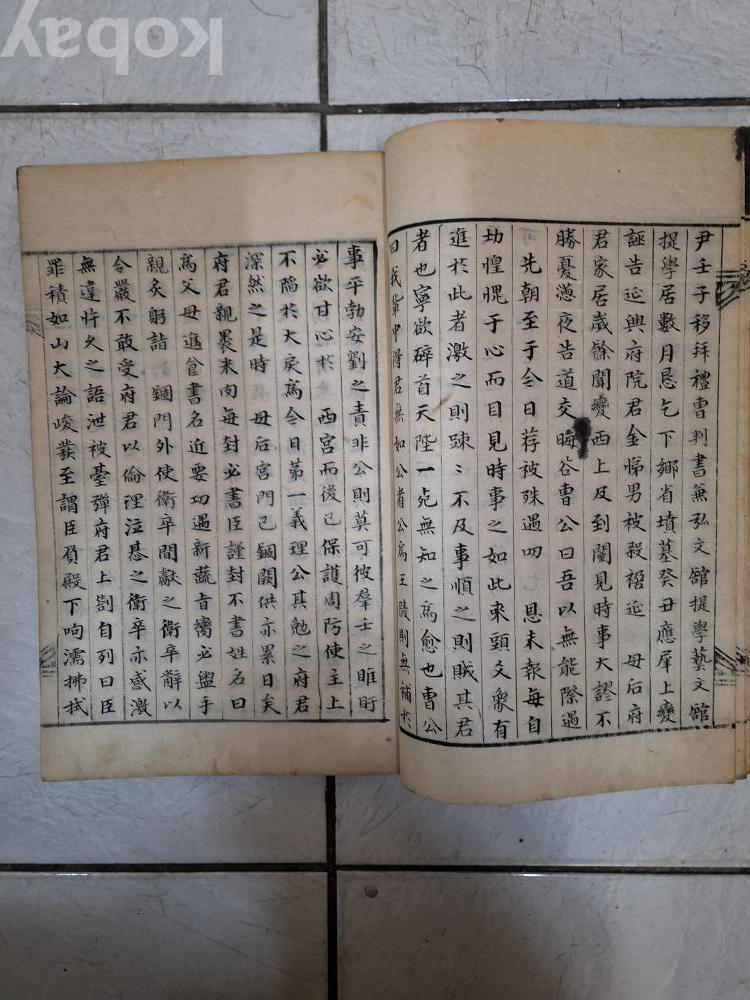 kobay
尹壬子移拜禮曹判書兼弘文館提學藝文館
提學居數月恳乞下鄉省墳墓癸丑應犀上變
誣告延興府院君金悌男被殺禍延 母后府
君家居歲餘聞變西上及到闉見時事大謬不
勝憂懣夜告道交晦谷曹公曰吾以無能際過
先朝至于今日荐被殊遇 恩未報每自
㤼惶愧于心而目見時事之如此来頭爻象有
進於此者激之則踈〻不及事順之則賊其君
者也寧欲碎首天陛一死無知之為愈也曹公
曰我輩中得君無如公者公為玉毀則無補於
事平勃安劉之責非公則莫可彼羣壬之睢盱
必欲甘心於 西宮而後已保護周防使主上
不陷於大戾為今日苐一義理公其勉之府君
深然之是時 母后宮門已錮闕供亦累日矣
府君親裹米肉每封必書臣謹封不書姓名曰
為父母進甞書名近要功過新蔬旨臠必盥手
親炙躬詣 錮門外使衛卒間獻之衛卒辭以
令嚴不敢受府君以倫理泣懇之衛卒亦感激
無違許久之語泄被臺彈府君上劄自列曰臣
罪積如山大論峻發至謂臣負殿下呴濡拂拭